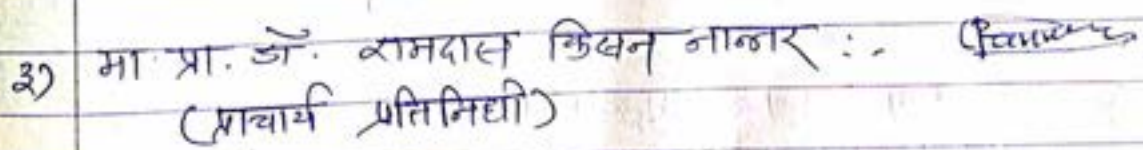 ३) मा. प्रा. डॉ. रामदास किसन नानार :-
(प्राचार्य प्रतिनिधी)